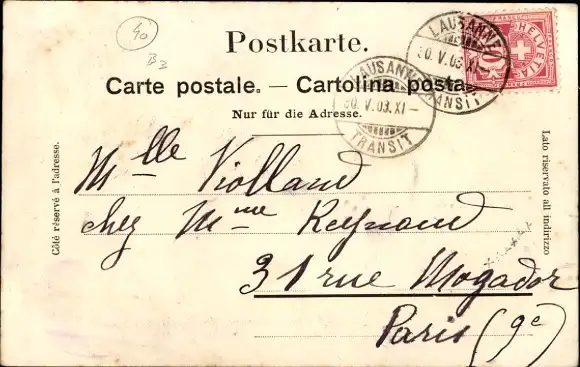 40
B2
Postkarte.
Carte postale. — Cartolina posta
Nur für die Adresse.
LAUSANNE
30. V. 03. XI –
TRANSIT
LAUSANNE
30. V. 03. XI –
TRANSIT
HELVETIA
10
Côté réservé à l'adresse.
Lato riservato all indirizzo
Mlle Violland
chez Mme Reynaud
31 rue Mogador
Paris (9e)